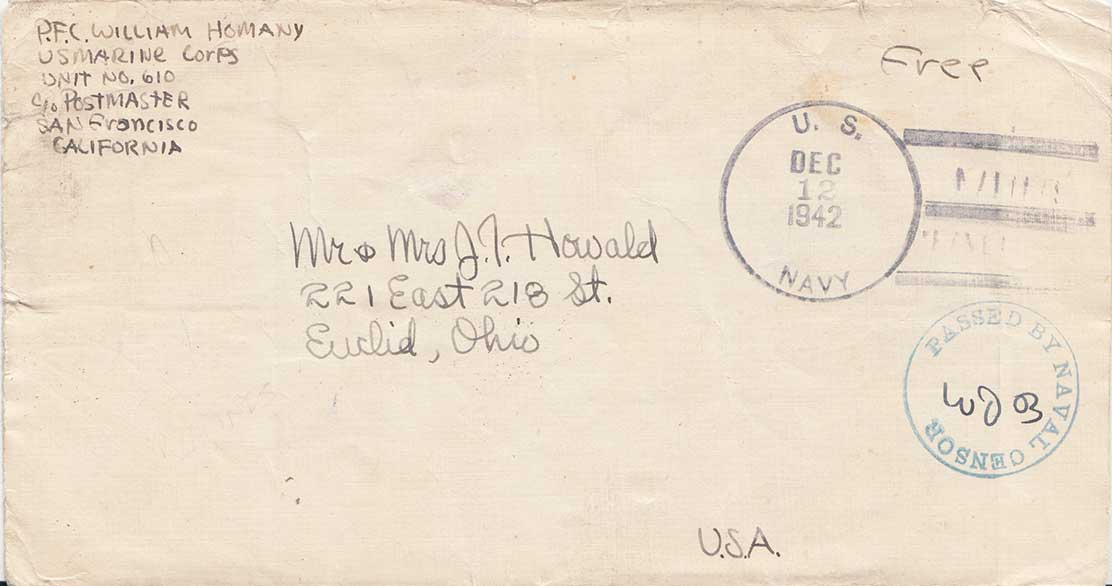 P.F.C. WILLIAM HOMANY
US MARINE Corps
UNIT NO. 610
c/o POSTMASTER
SAN Francisco
CALIFORNIA
Free
U. S.
DEC
12
1942
NAVY
Mr & Mrs J. I. Howald
221 East 218 St.
Euclid, Ohio
PASSED BY NAVAL CENSOR
U.S.A.